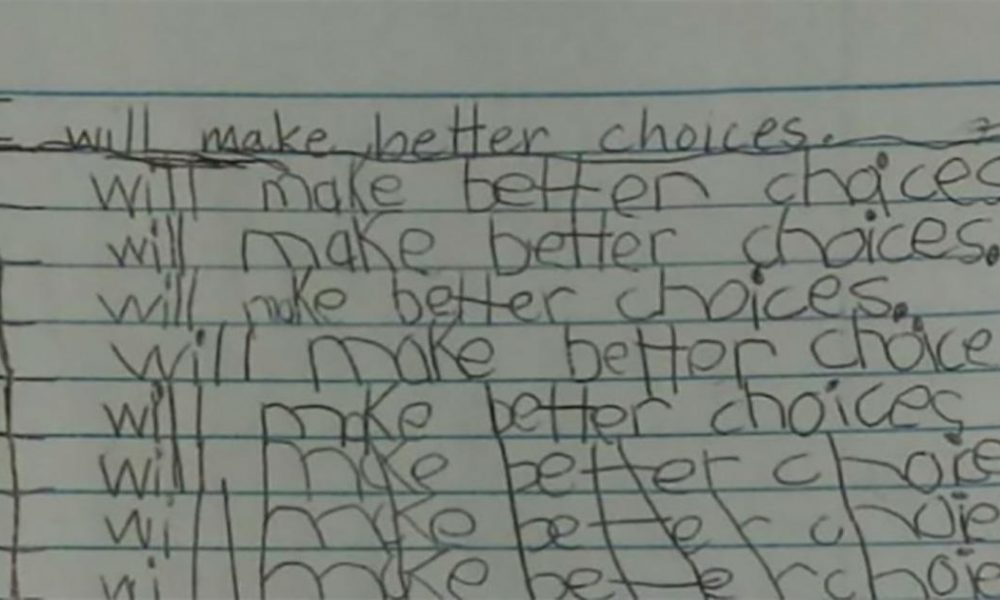 I will make better choices. I
will make better choices
will make better choices.
will make better choices.
will make better choice
will make better choices
will make better choice
wil make better choie
wil make better choie